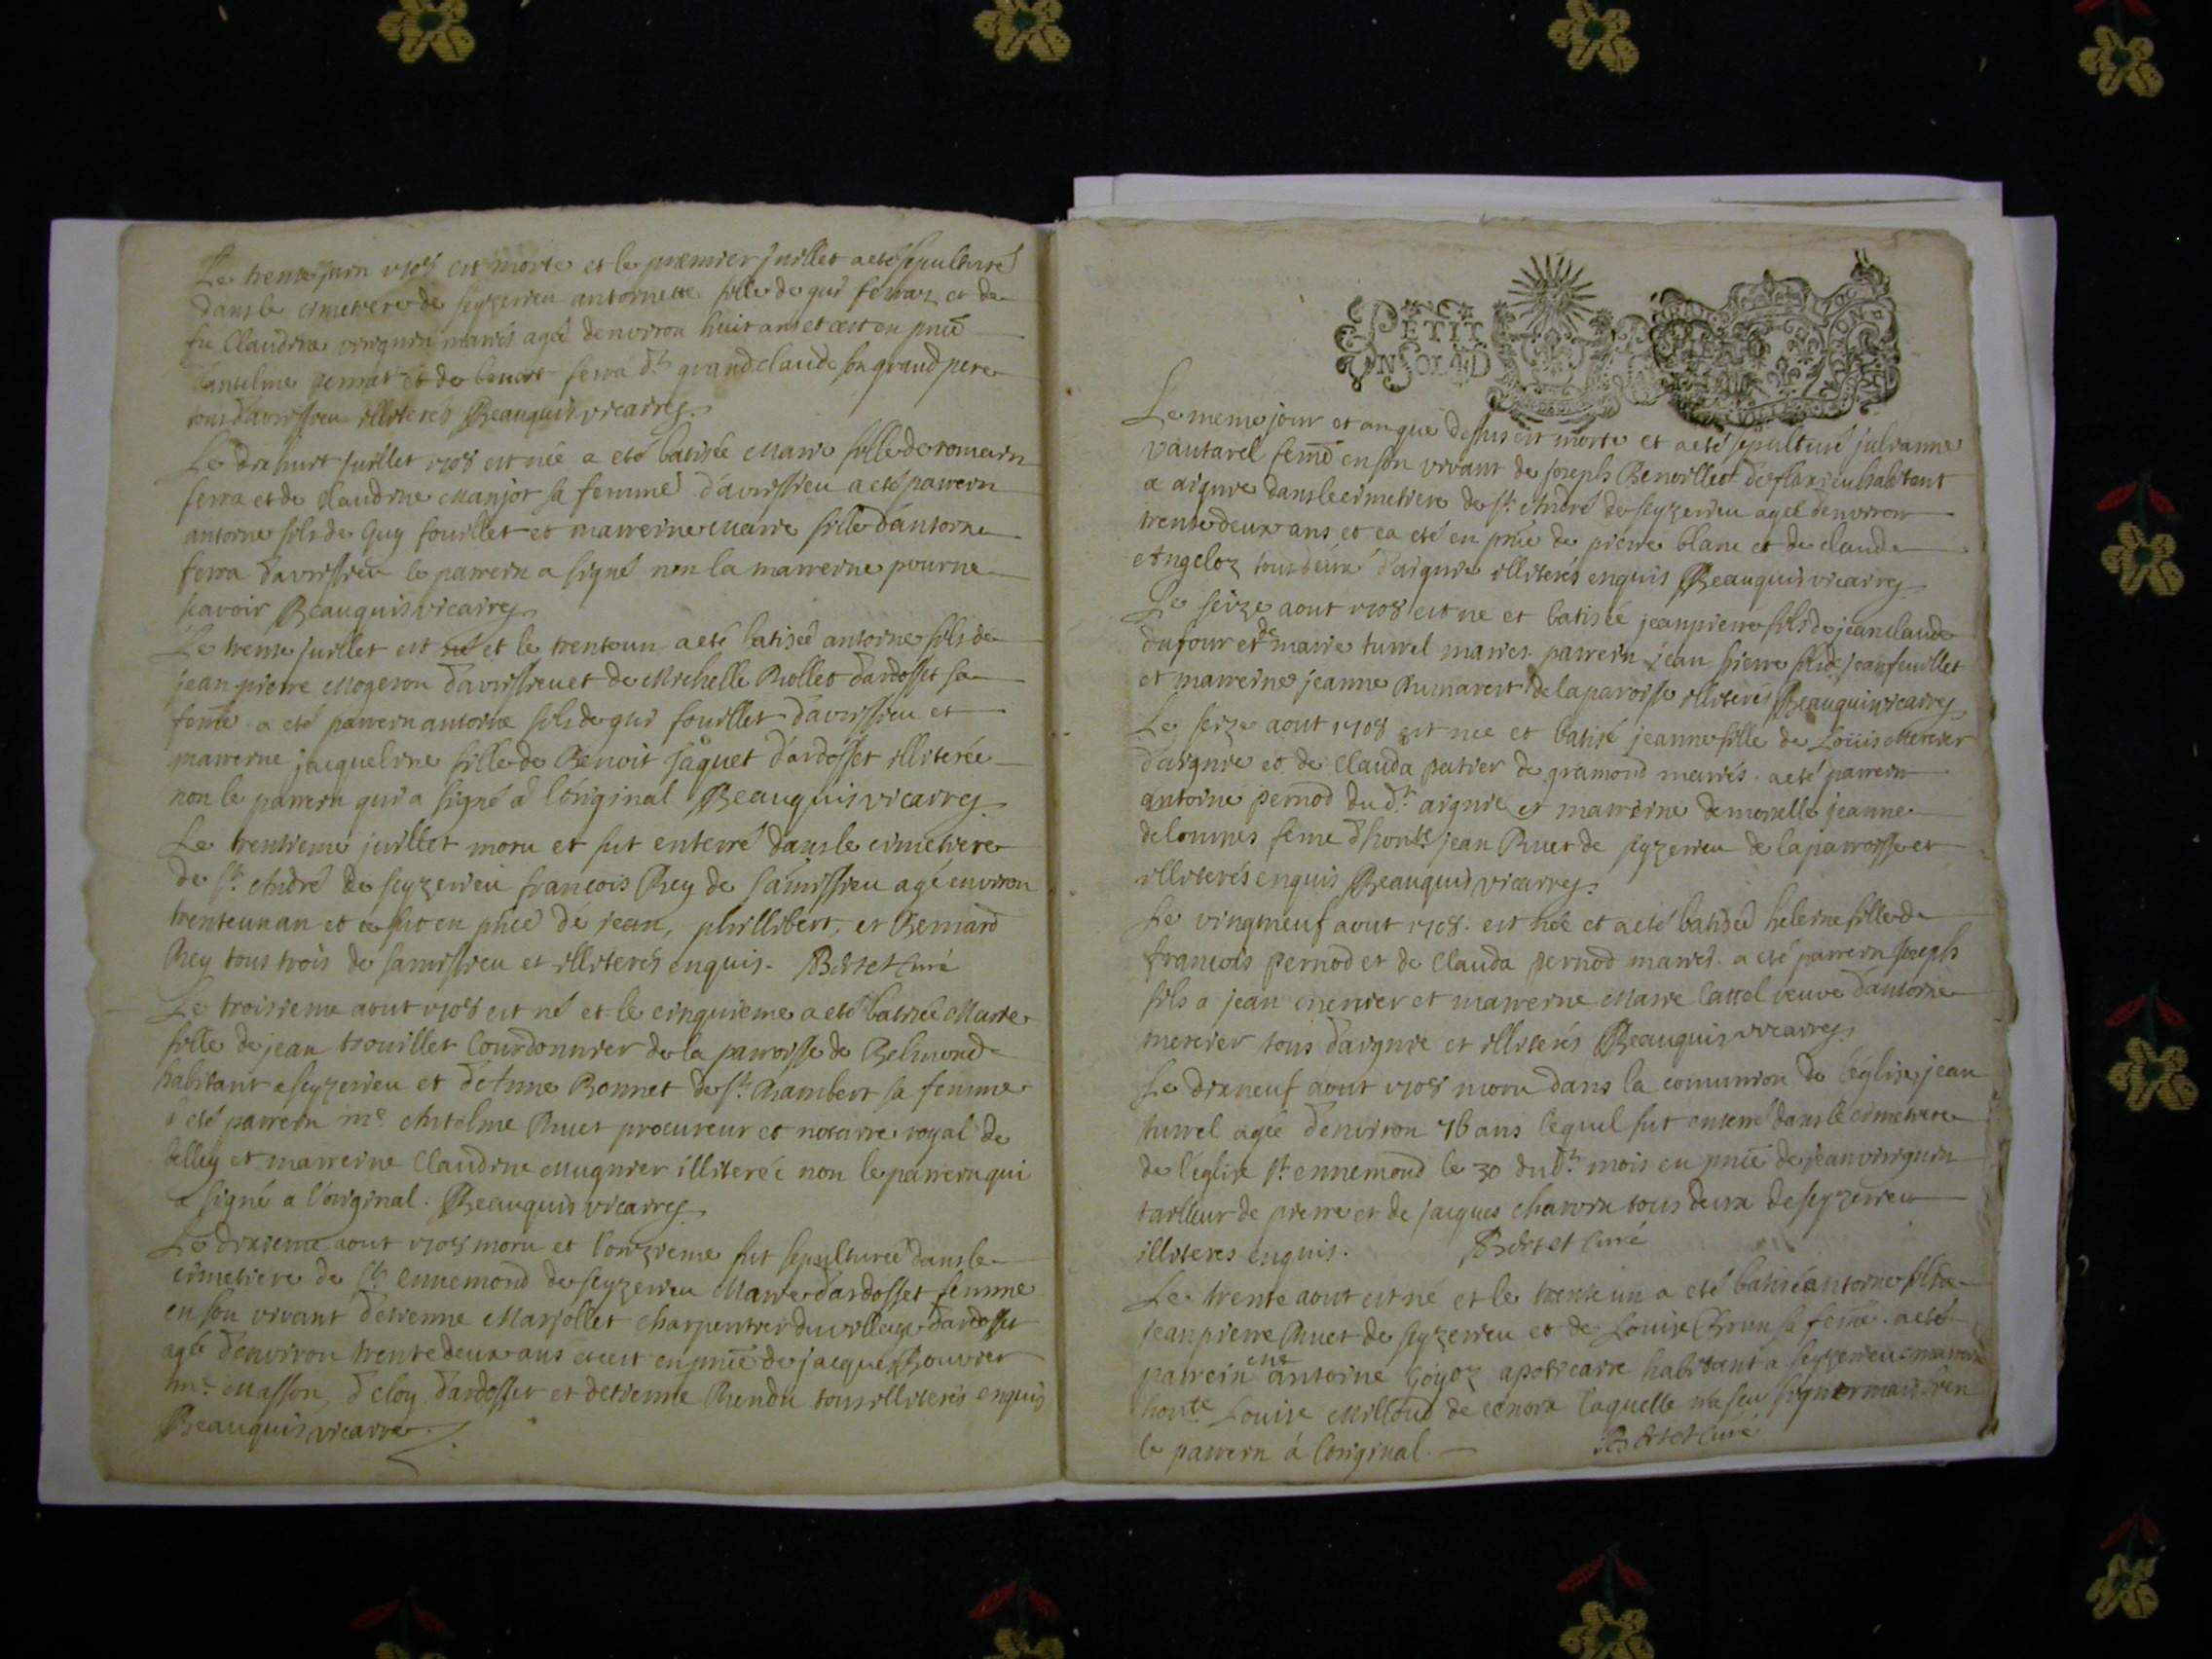 Le trente juin 1708 est morte et le premier juillet a eté sepulturé
dans le cimetiere de seyzerieu antoinette fille de gui ferraz et de
fu Claudine vinignin mariés agée denviron huit ans et cest en pnce
danselme pernat et de benoit ferra dt grand claude son grand pere
tous davrissieu illiterés Beauquis vicaire
Le dix huit juillet 1708 est née a eté batisée Marie fille de romain
ferra et de Claudine Manjot sa femme d'avrissieu a eté parrein
antoine fils de Guy fouillet et marreine Marie fille d'antoine
ferra davrissieu le parrein a signé non la marreine pour ne
scavoir Beauquis vicaire
Le trente juillet est né et le trenteun a eté batisée antoine fils de
jean pierre Mogeron d'avrissieu et de Michelle Rollet d'ardosset sa
feme a eté parrein antoine fils de gui fouillet d'avrissieu et
marreine jacqueline fille de Benoit jaquet d'ardosset illiterée
non le parrein qui a signé a l'original Beauquis vicaire
Le trentieme juillet moru et fut enterré dans le cimetiere
de st André de seyzerieu francois Rey de samissieu agé environ
trenteun an et ce fut en pnce de jean, phillibert, et Bernard
Rey tous trois de samissieu et illiterés enquis. Bertet curé
Le troisieme aout 1708 est né et le cinquieme a eté batisée Marie
fille de jean trouillet Courdonnier de la parroisse de Belmond
habitant a seyzerieu et d'Anne Bonnet de st Rambert sa femme
a eté parrein me Anselme Ruet procureur et notaire royal de
belley et marreine Claudine Mugnier illiterée non le parrein qui
a signé a l'original. Beauquis vicaire
Le dixieme aout 1708 moru et l'onzieme fut sepulturée dans le
cimetiere de st Ennemond de seyzerieu Marie d'ardosset femme
en son vivant detienne Marjollet charpentier du village dardosset
agée denviron trente deux ans et cest en pnce de jacques Bouvier
me Masson, d'eloy dardosset et detienne Rendu tous illiterés enquis
Beauquis vicaire
PETIT
UN SOL
Le meme jour et an que dessus est morte et a eté sepulturé julianne
vautarel feme en son vivant de joseph Benoillet de flaxieu habitant
a aignie dans le cimetiere de st André de seyzerieu agée denviron
trente deux ans et ca eté en pnce de pierre blanc et de claude
Angeloz tous deux d'aignie illiterés enquis Beauquis vicaire
Le seize aout 1708 est ne et batisée jean pierre fils de jean claude
dufour et de marie turrel mariés. parrein jean pierre fils de jean feuillet
et marreine jeanne de la paroisse illiterés Beauquis vicaire
Le seize aout 1708 est nee et batisé jeanne fille de Loüis Mercier
d'aignie et de Clauda peitier de gramond mariés. a eté parrein
antoine pernod du dt aignie et marreine demoiselle jeanne
deloumes feme d'honte jean Ruet de seyzerieu de la parroisse et
illiterés enquis Beauquis vicaire
Le vingtneuf aout 1708. est née et a eté batisée heleine fille de
francois pernod et de Clauda pernod mariés. a eté parrein joseph
fils a jean mercier et marreine Marie Cattel veuve d'antoine
mercier tous d'aignie et illiterés Beauquis vicaire
Le dixneuf aout 1708 moru dans la comunion de l'église jean
turrel agée d'environ 76 ans lequel fut enterré dans le cimetiere
de l'église st ennemond le 30 du dt mois en pnce de jean vinignin
tailleur de pierre et de jacques charvin tous deux de seyzerieu
illiteres enquis. Bertet curé
Le trente aout est né et le trente un a eté batisé antoine fils a
jean pierre Ruet de seyzerieu et de Louise Brun sa feme. a eté
parrein me antoine Goyoz apoticaire habitant a seyzerieu marreine
honte Louise Millioud de conora laquelle n'a seu signer mais bien
le parrein á l'original. Bertet curé